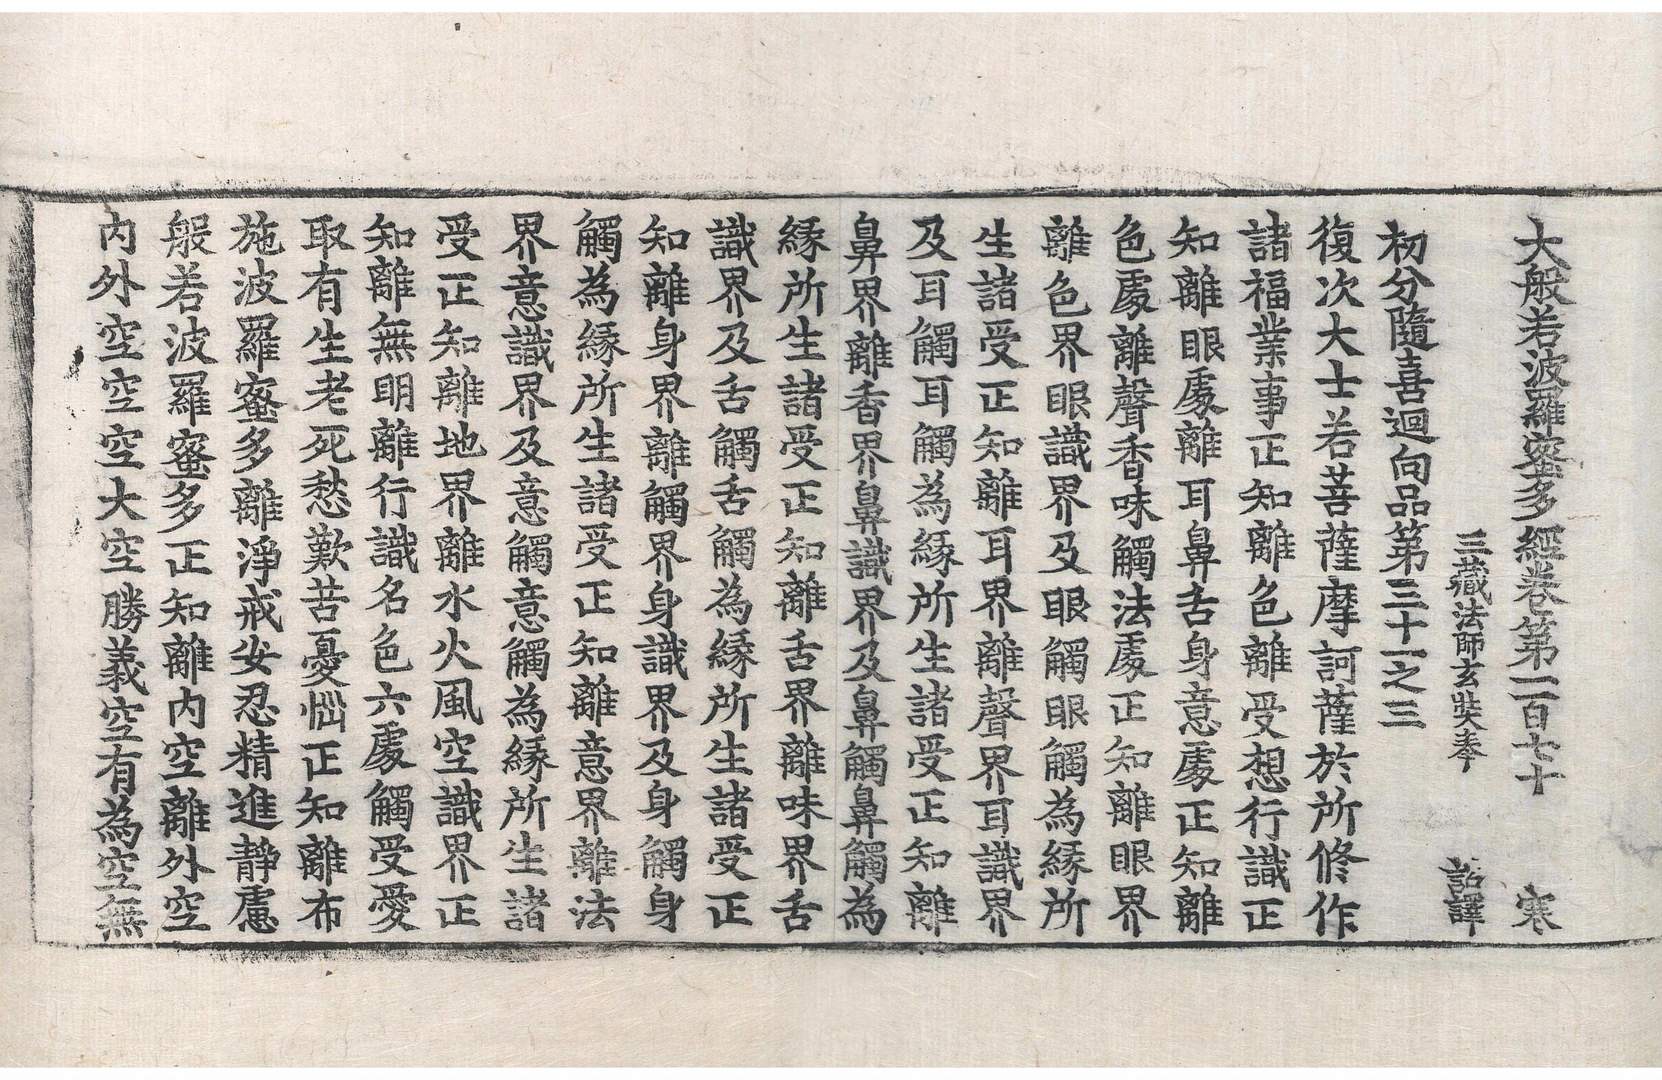 大般若波羅蜜多經卷第一百七十 寒
三藏法師玄奘奉 詔譯
初分隨喜迴向品第三十一之三
復次大士若菩薩摩訶薩於所修作
諸福業事正知離色離受想行識正
知離眼處離耳鼻舌身意處正知離
色處離聲香味觸法處正知離眼界
離色界眼識界及眼觸眼觸為緣所
生諸受正知離耳界離聲界耳識界
及耳觸耳觸為緣所生諸受正知離
鼻界離香界鼻識界及鼻觸鼻觸為
緣所生諸受正知離舌界離味界舌
識界及舌觸舌觸為緣所生諸受正
知離身界離觸界身識界及身觸身
觸為緣所生諸受正知離意界離法
界意識界及意觸意觸為緣所生諸
受正知離地界離水火風空識界正
知離無明離行識名色六處觸受愛
取有生老死愁歎苦憂惱正知離布
施波羅蜜多離淨戒安忍精進靜慮
般若波羅蜜多正知離內空離外空
內外空空空大空勝義空有為空無